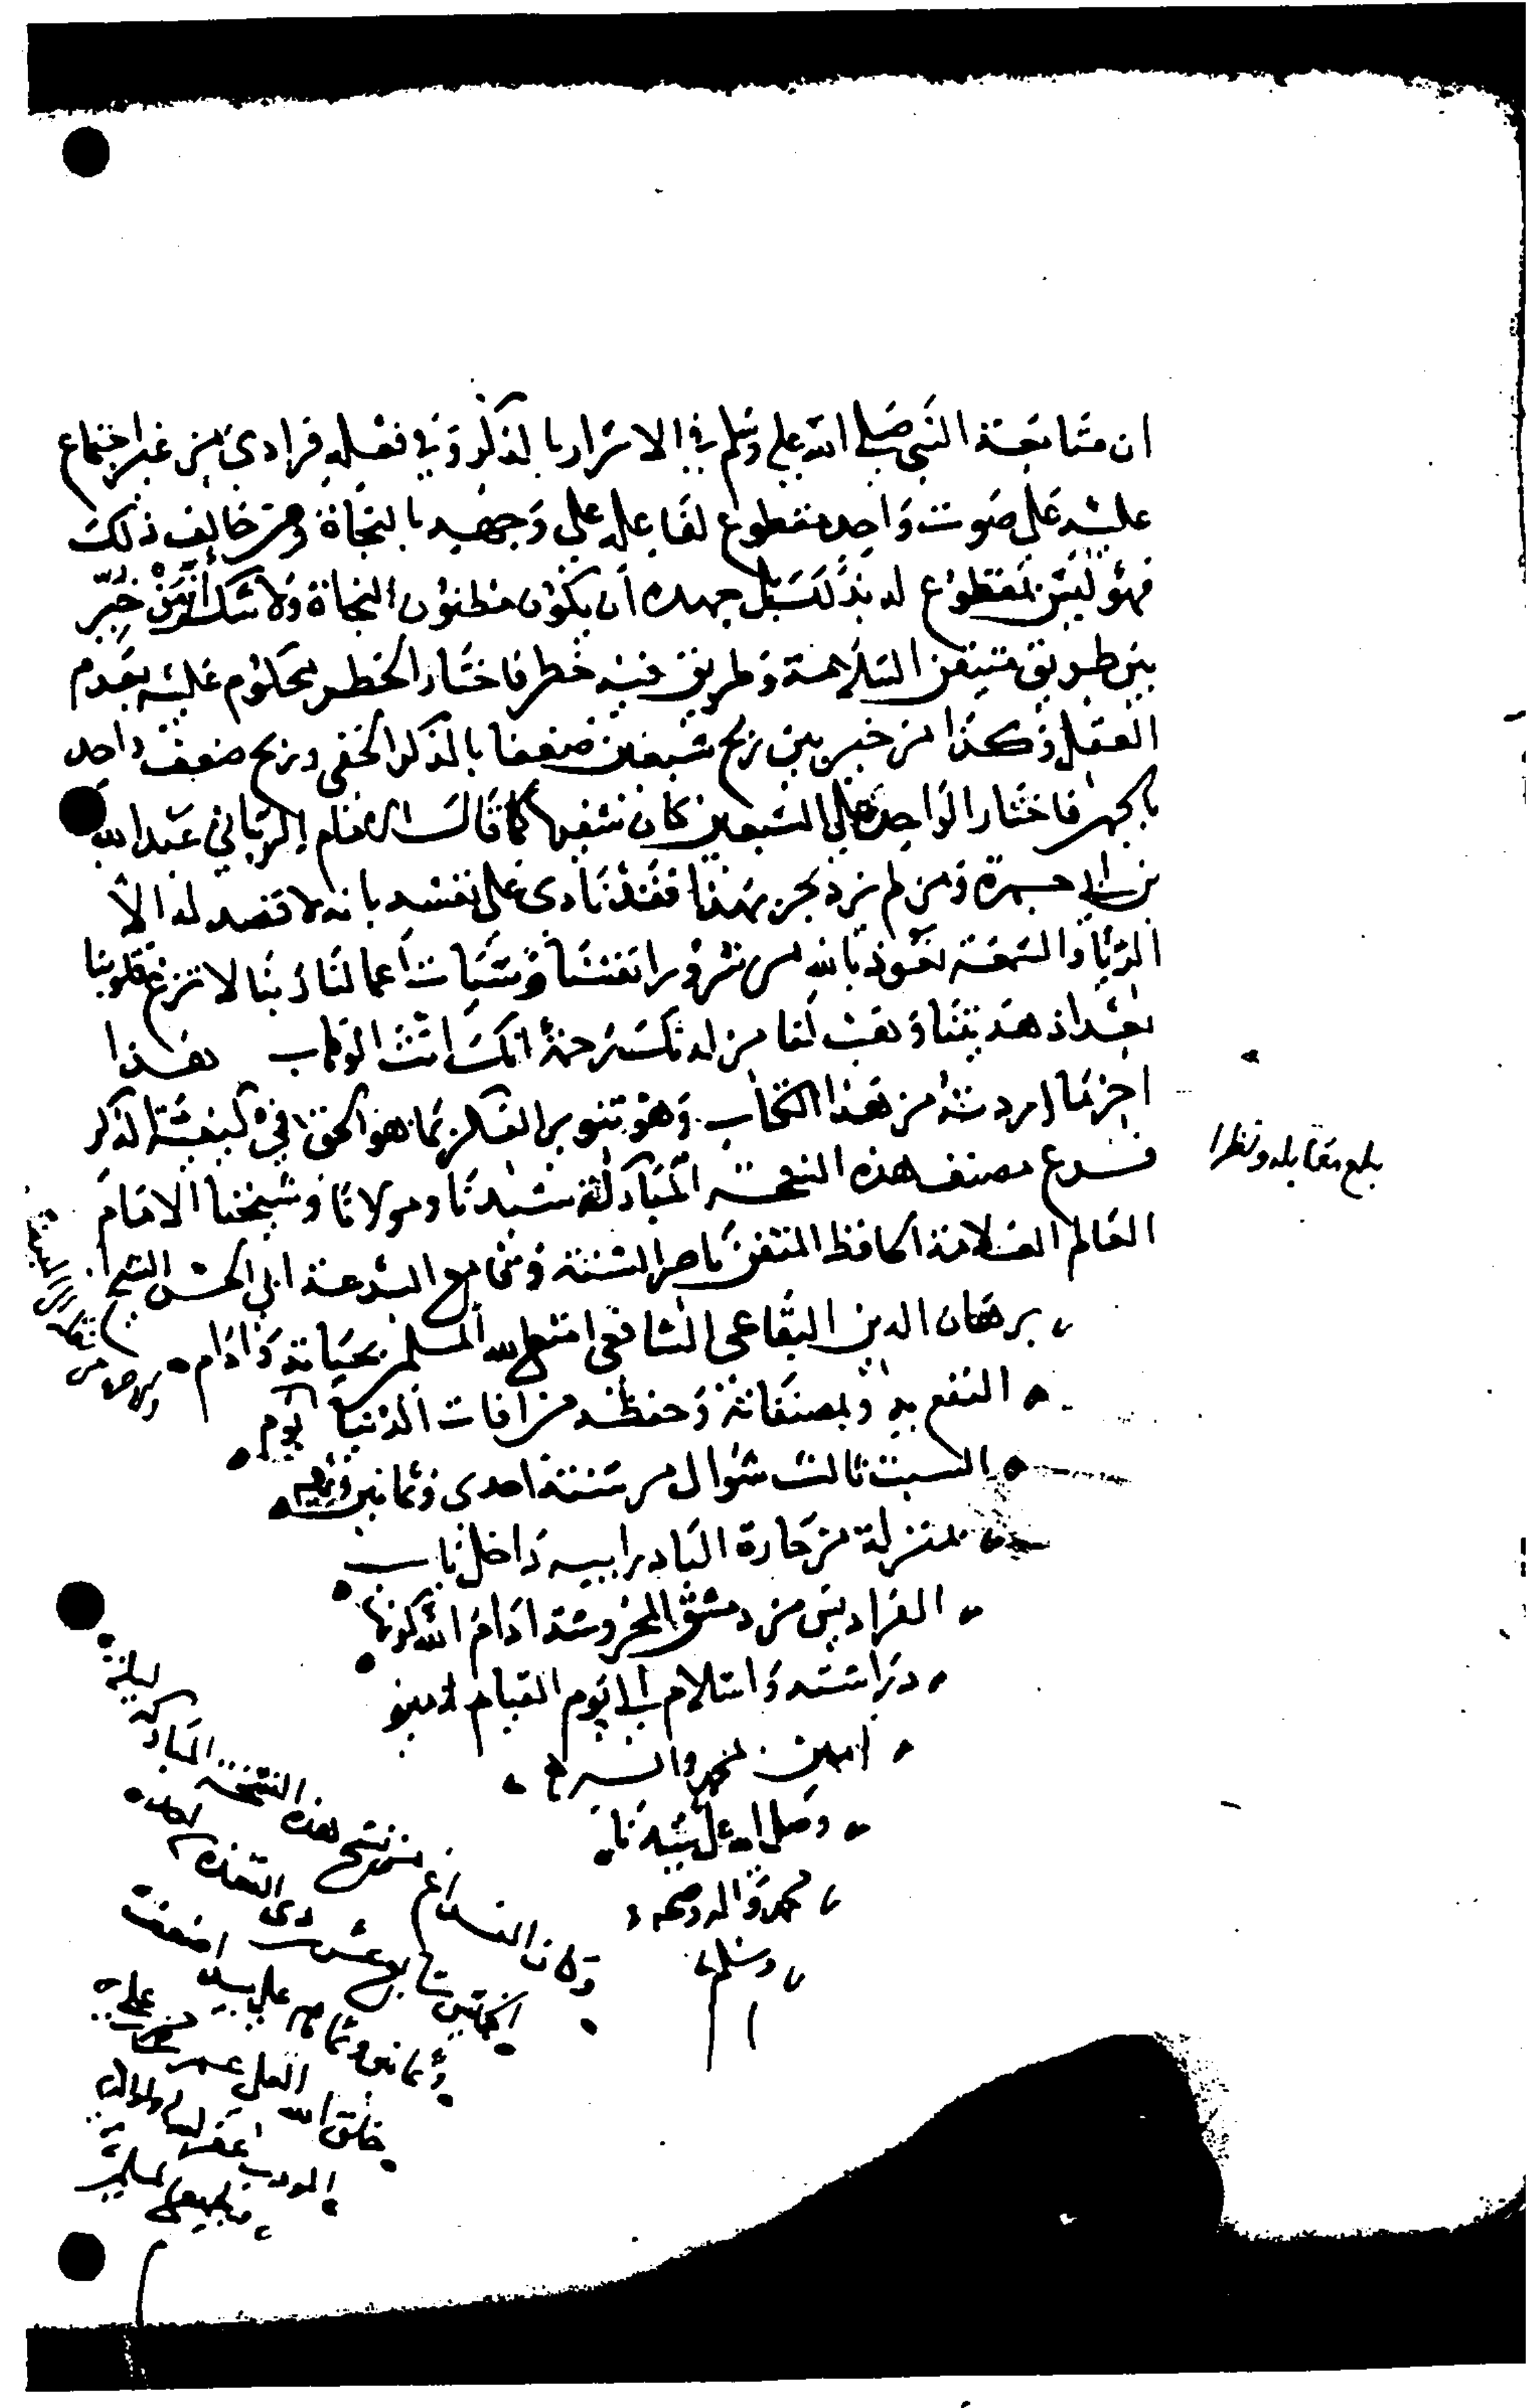 ان متابعة النبي صلى الله عليه وسلم في الاسرار بالذكر وفي فعله فرادى من غير اجتماع
عليه على صوت واحد مقطوع لفاعله على وجهه بالنجاة ومن خالف ذلك
فهو ليس بمقطوع له بذلك بل جهده ان يكون مظنون النجاة ولا شك ان من خير
بين طريق متيقن السلامة وطريق فيه خطر فاختار الخطر محكوم عليه بعدم
العقل وكذا من خير بين ربح سبعين ضعفا بالذكر الخفي وربح ضعف واحد
بالجهر فاختار الواحد على السبعين كان سفيها كما قال الامام الرباني عبد الله
بن ابي جمرة ومن لم يزدجر بهذا فقد نادى على نفسه بانه لا قصد له الا
الريا والسمعة نعوذ بالله من شرور انفسنا وسيات اعمالنا ربنا لا تزغ قلوبنا
بعد اذ هديتنا وهب لنا من لدنك رحمة انك انت الوهاب وهذا
اخر ما اردته من هذا الكتاب وهو تنوير الفكر بما هو الحق في كيفية الذكر
فرغ مصنف هذه النسخة المباركة سيدنا ومولانا وشيخنا الامام
العالم العلامة الحافظ المتقن ناصر السنة وقامع البدعة ابي الحسن
برهان الدين البقاعي الشافعي امتع الله المسلمين بحياته وادام
النفع به وبمصنفاته وحفظه من افات الدنيا يوم
السبت ثالث شوال من سنة احدى وثمانين وثمانمية
بمنزله من حارة البادرابيه داخل باب
الفراديس من دمشق المحروسة ادام الله كونها
دار سنة واسلام الى يوم القيام امين
امين بمحمد واله
وصلى الله على سيدنا
محمد واله وصحبه
وسلم
بلغ مقابله ونظرا
وكان الفراغ من نسخ هذه النسخة المباركة ليلة
الخميس عشر ذي القعدة
وثمانين وثمانماية على يد اضعف
خلق الله العلي عمر
اغفر له ولوالديه
ولجميع المسلمين